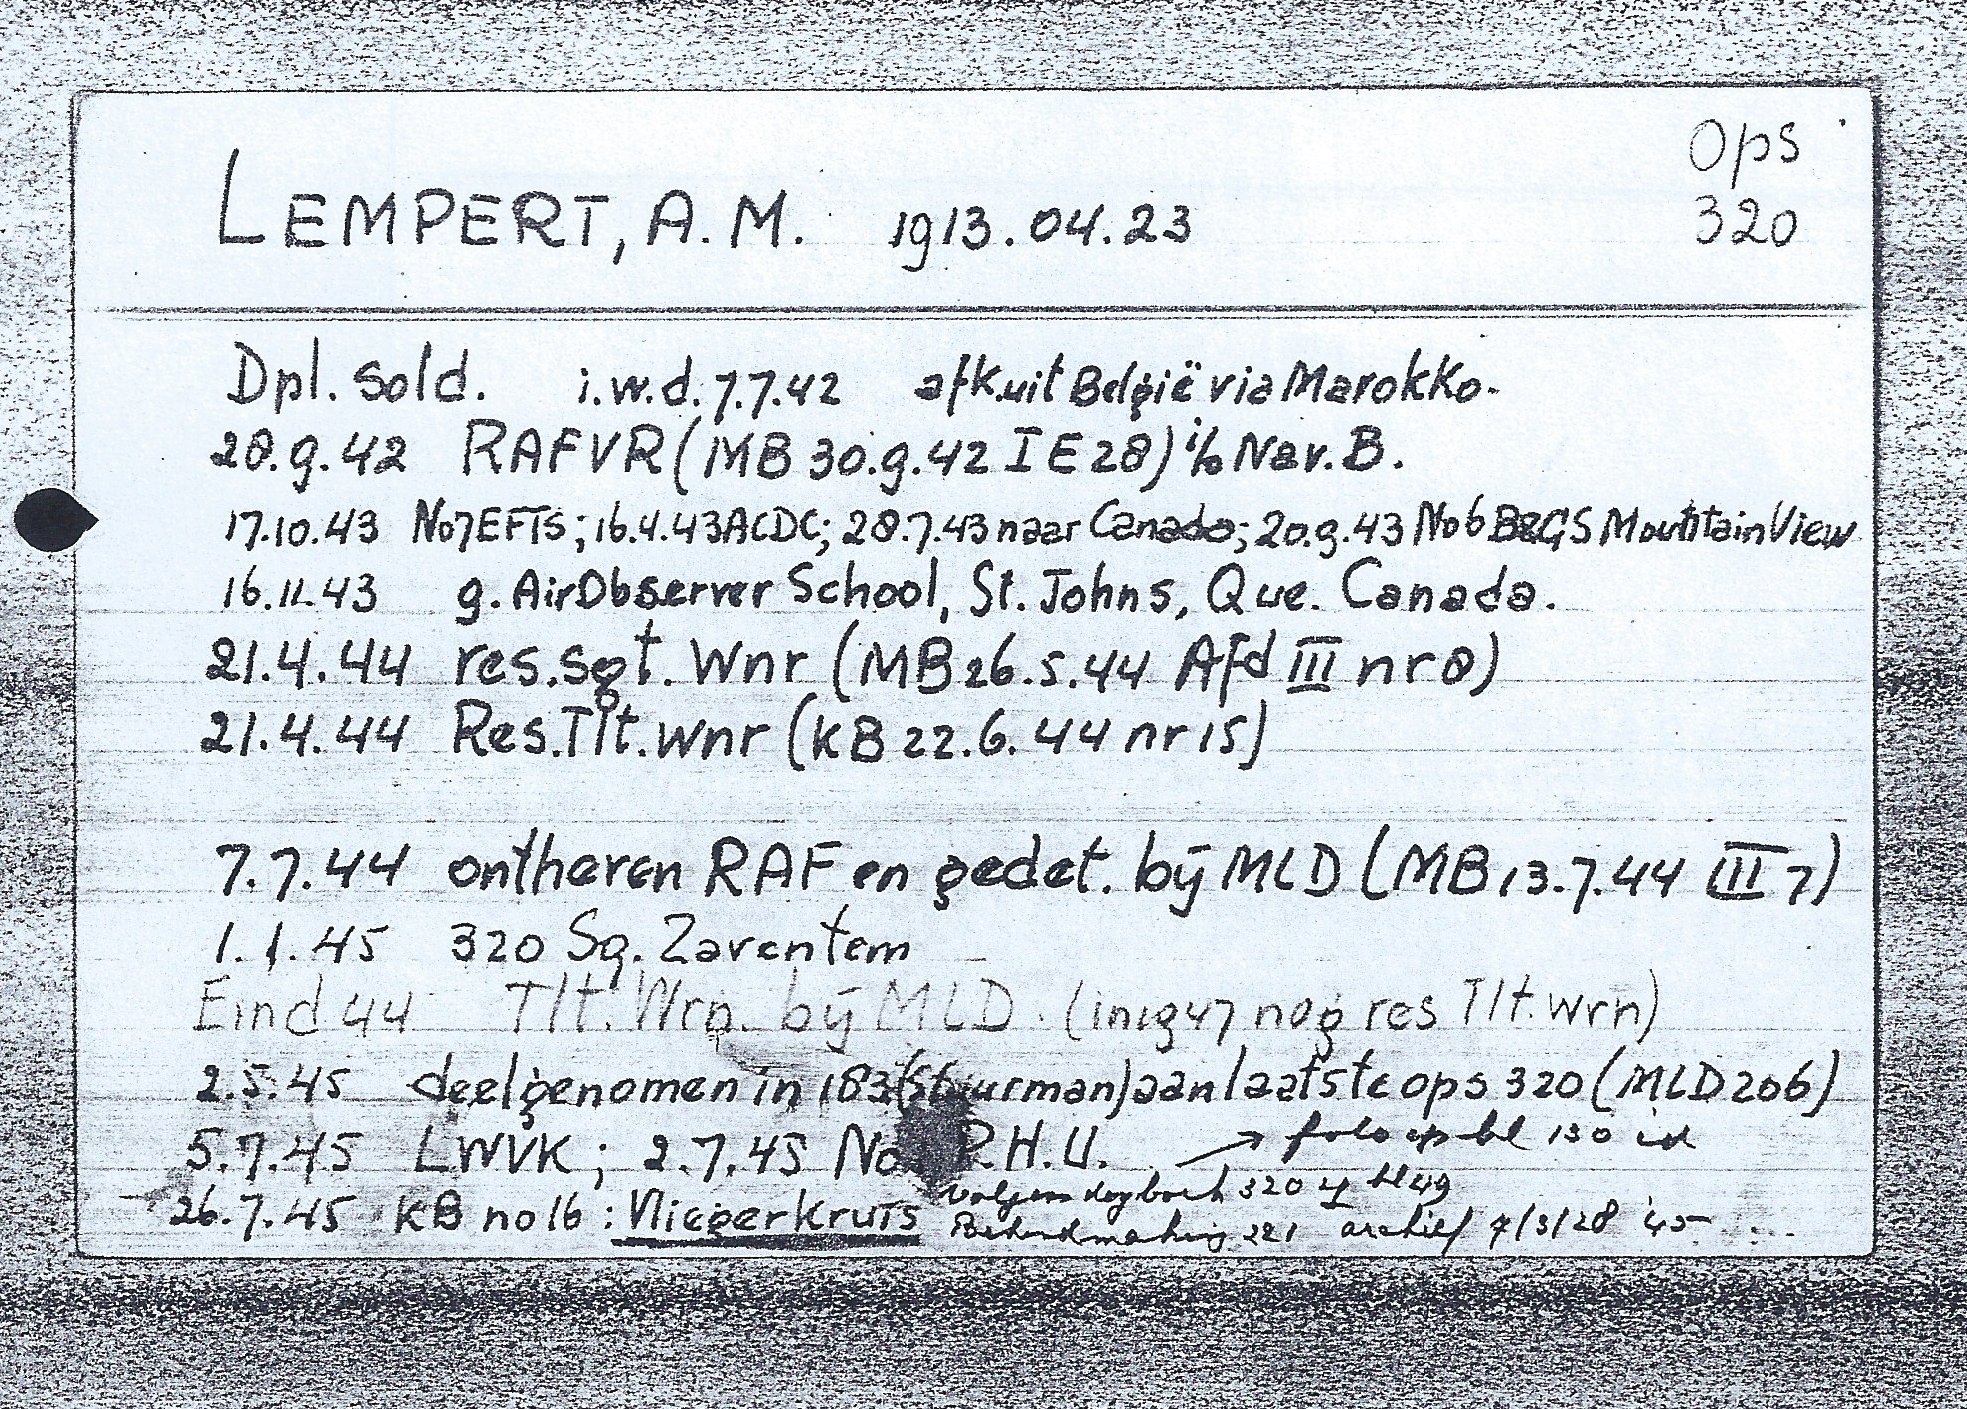 Ops
LEMPERT, A.M. 1913.04.23 320
Dpl. sold. i.w.d. 7.7.42 afk.uit België via Marokko.
28.9.42 RAFVR (MB 30.9.42 I E 28) i/o Nav. B.
17.10.43 No 7 EFTS; 16.4.43 ACDC; 28.7.43 naar Canada; 20.9.43 No 6 B&GS Mountain View
16.11.43 9. Air Observer School, St. Johns, Que. Canada.
21.4.44 res.sgt. Wnr (MB 26.5.44 Afd III nr 8)
21.4.44 Res.Tlt.Wnr (KB 22.6.44 nr 15)
7.7.44 ontheven RAF en gedet. bij MLD (MB 13.7.44 III 7)
1.1.45 320 Sq. Zaventem
Eind 44 Tlt. Wrn. bij MLD. (in 1947 nog res Tlt. wrn)
2.5.45 deelgenomen in 183 (Stuurman) aan laatste ops 320 (MLD 206)
5.7.45 LWVK; 2.7.45 No P.H.U. → foto op bl 130 id
volgens dagboek 320 bl 49
26.7.45 KB no 16 : Vliegerkruis Bekendmaking 221 archief 7/3/28 '45